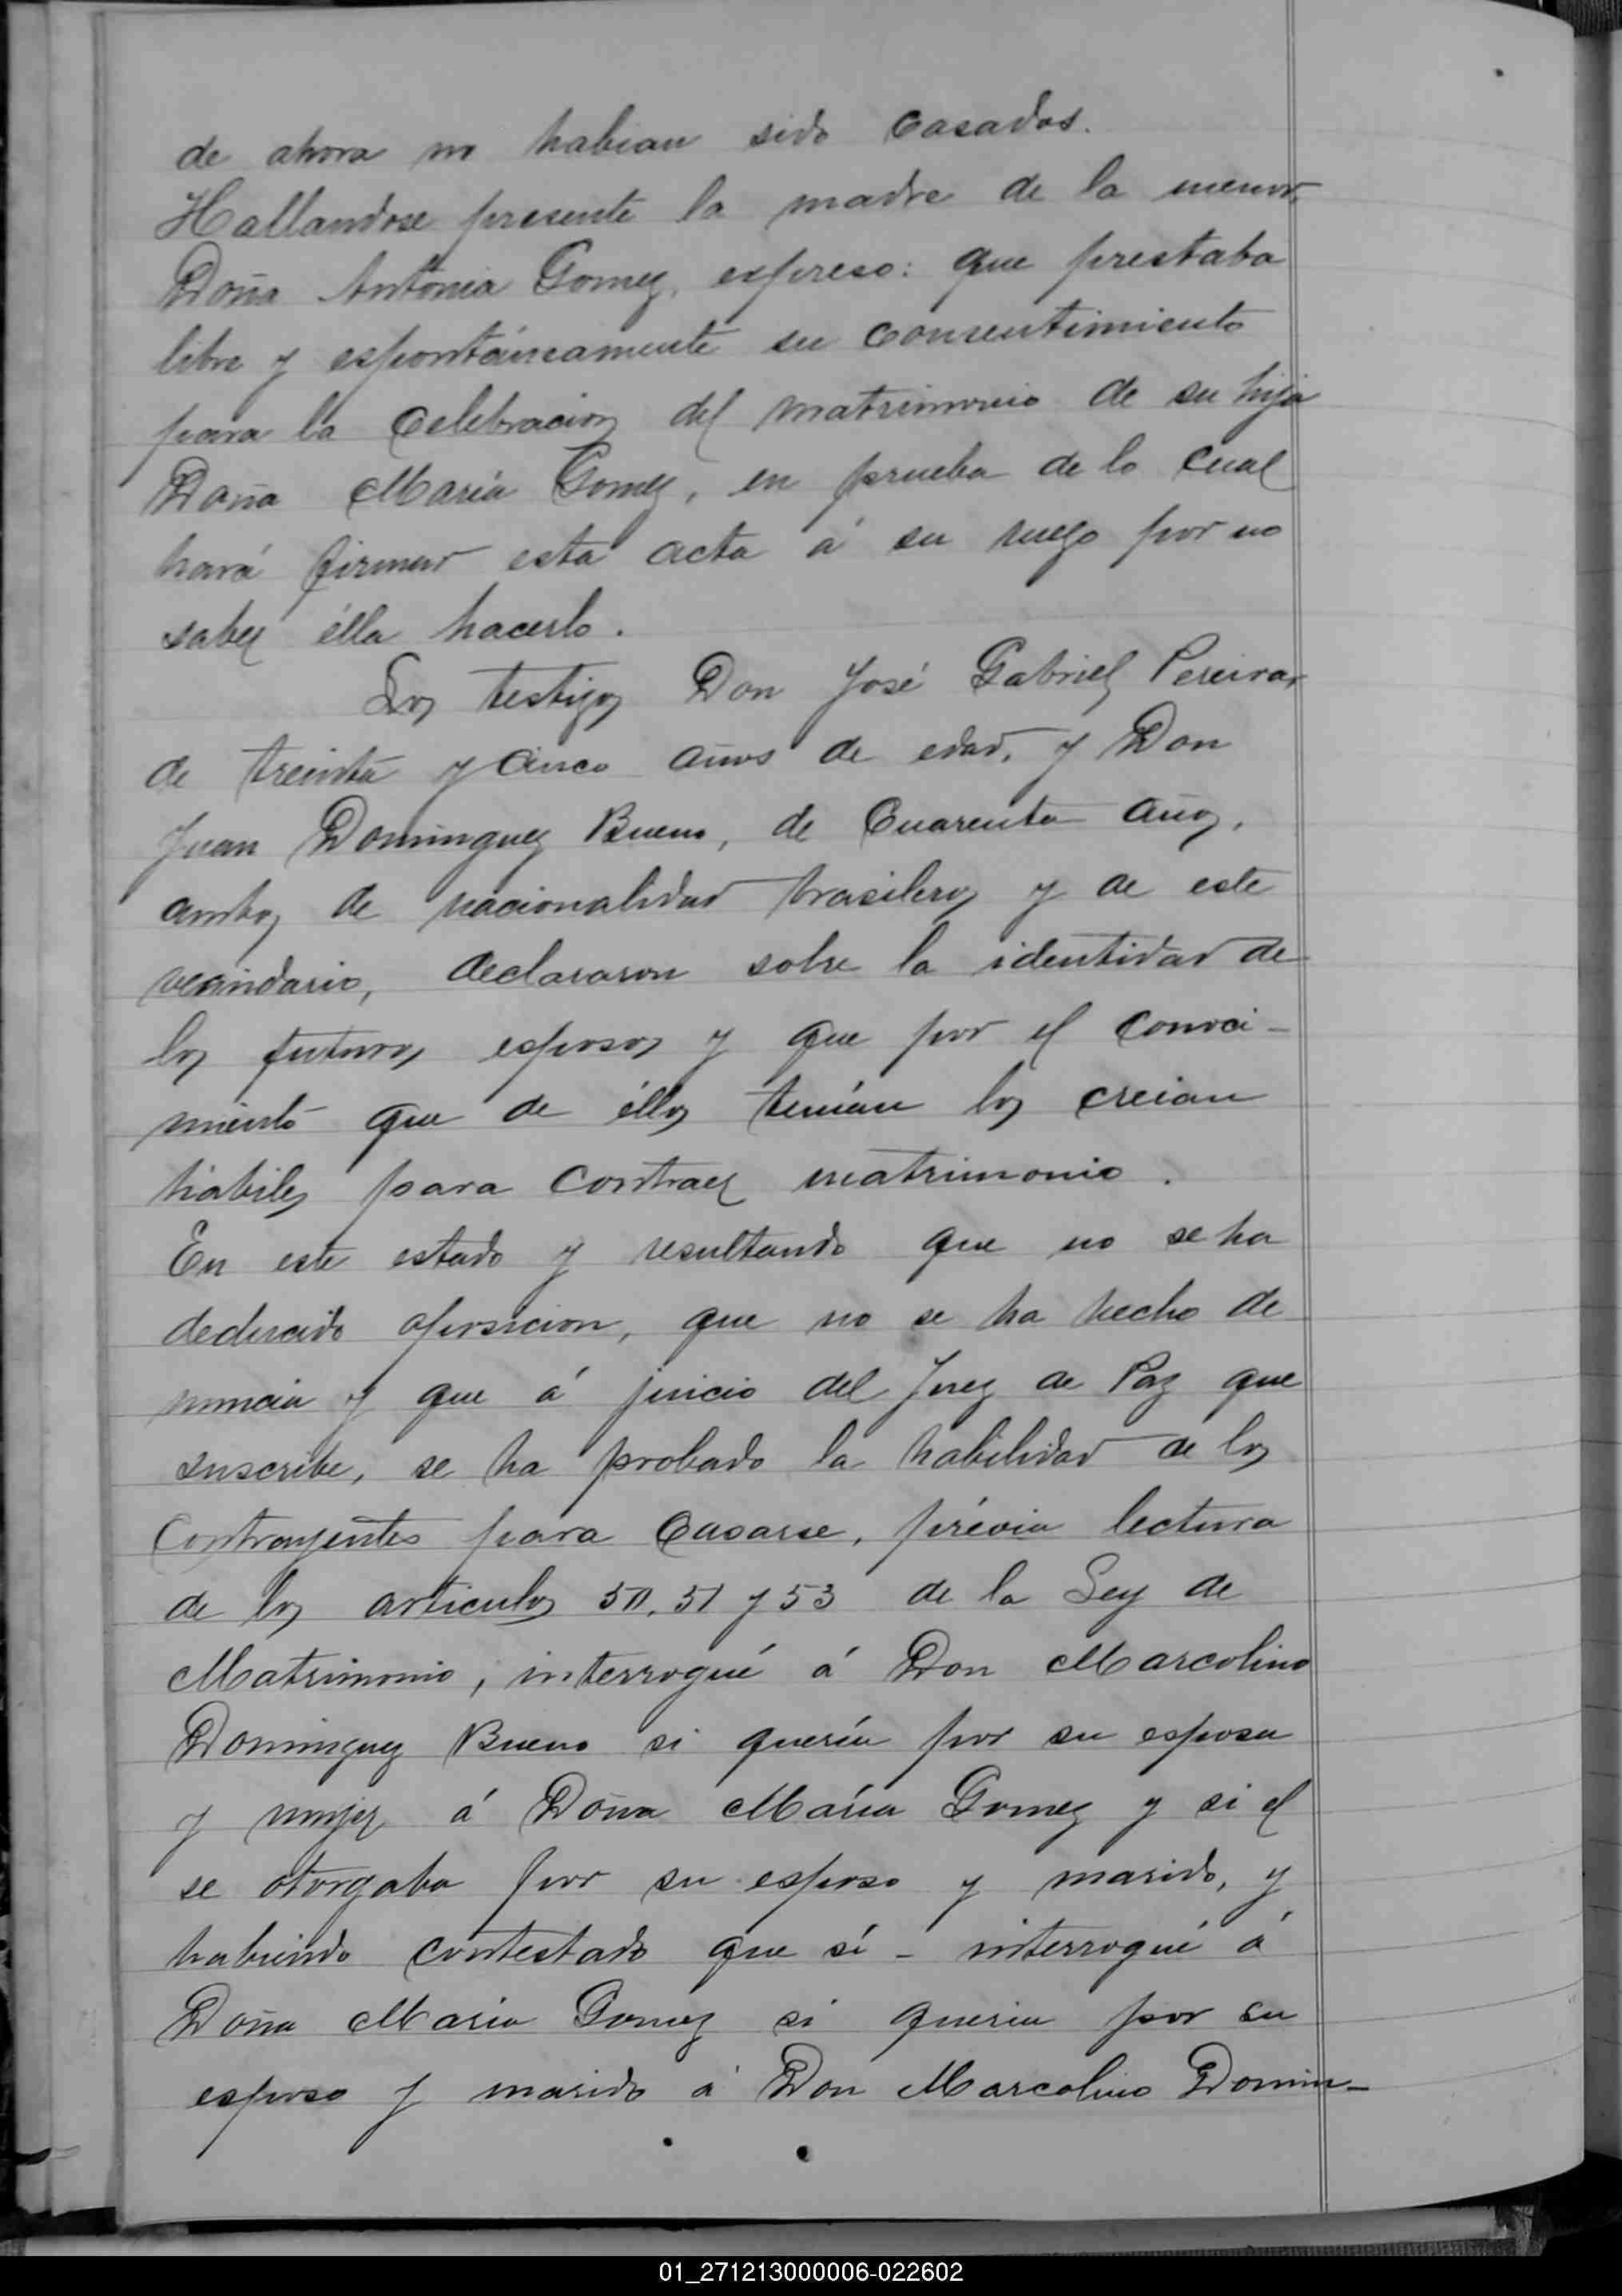 de ahora no habian sido casados.
Hallandose presente la madre de la menor,
Doña Antonia Gomez, espreso: que prestaba
libre y espontáneamente su consentimiento
para la celebracion del matrimonio de su hija
Doña María Gomez, en prueba de lo cual
hará firmar esta acta á su ruego por no
saber élla hacerlo.
Los testigos Don José Gabriel Pereira,
de treinta y cinco años de edad, y Don
Juan Dominguez Bueno, de cuarenta años,
ambos de nacionalidad brasileros y de este
vecindario, declararon sobre la identidad de
los futuros esposos y que por el conoci-
miento que de éllos tenían los creian
hábiles para contraer matrimonio.
En este estado y resultando que no se ha
deducido oposicion, que no se ha hecho de
nuncia y que á juicio del Juez de Paz que
suscribe, se ha probado la habilidad de los
contrayentes para casarse, prévia lectura
de los articulos 50, 51 y 53 de la Ley de
Matrimonio, interrogué á Don Marcolino
Dominguez Bueno si quería por su esposa
y mujer á Doña María Gomez y si el
se otorgaba por su esposo y marido, y
habiendo contestado que sí - interrogué á
Doña María Gomez si queria por su
esposo y marido á Don Marcolino Domin-
01_271213000006-022602